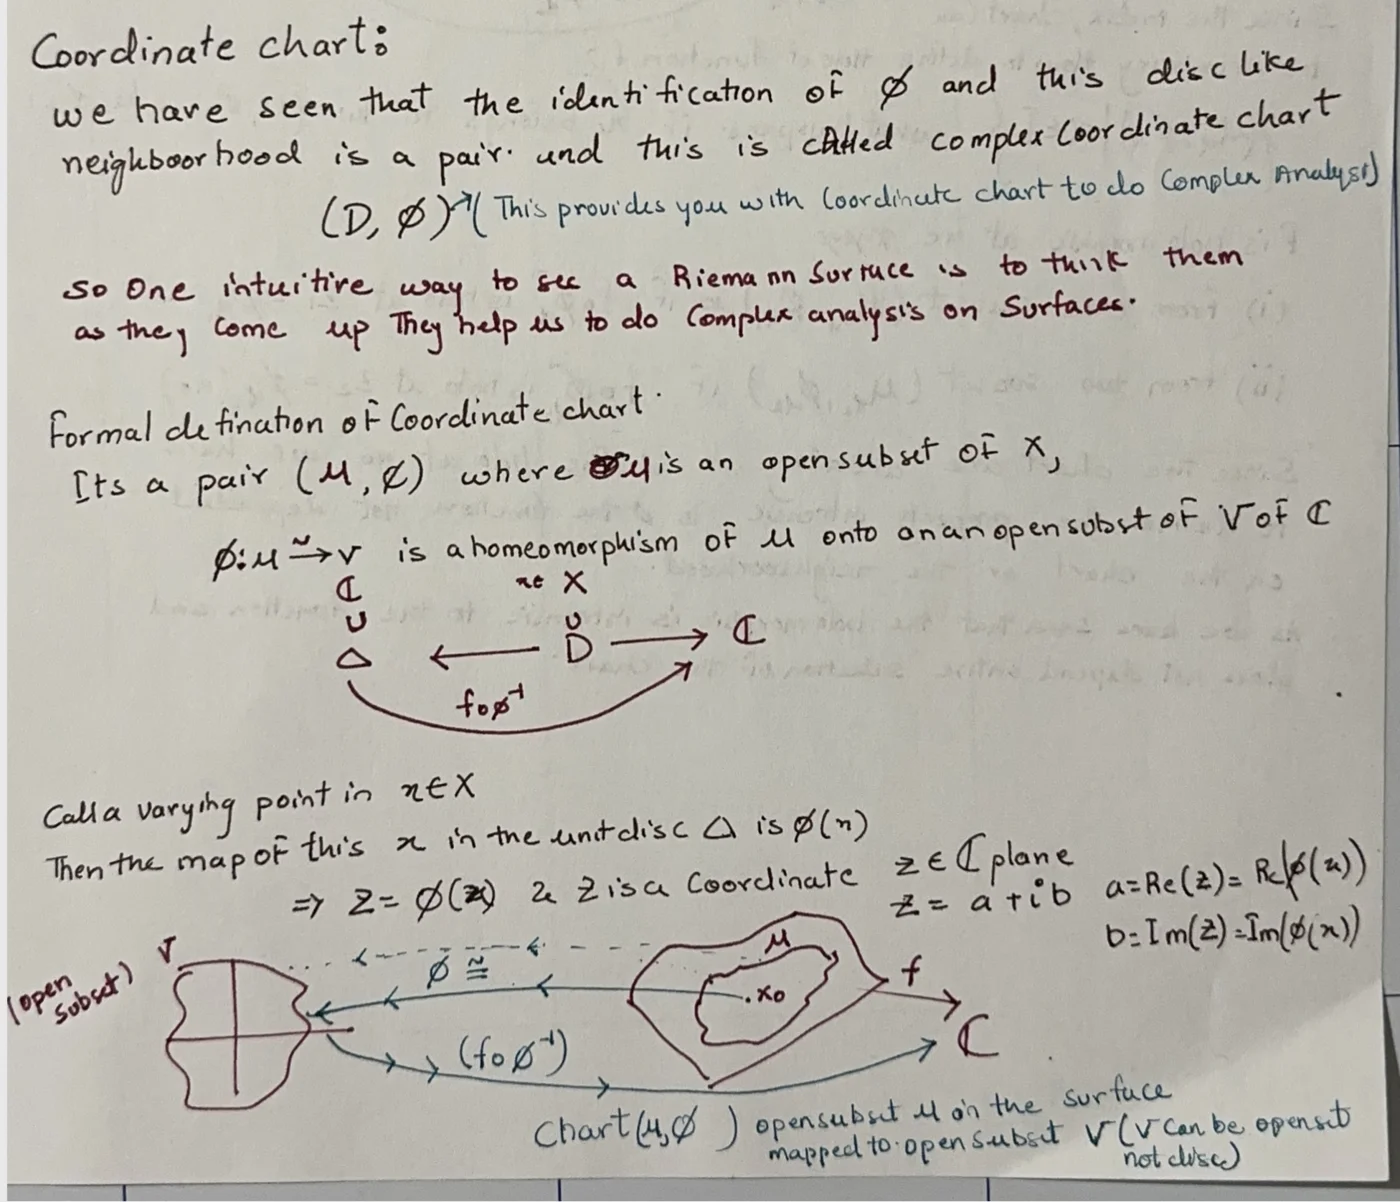 Coordinate chart:
we have seen that the identification of ϕ and this disc like
neighboorhood is a pair. and this is called complex Coordinate chart
(D, ϕ) ↗ (This provides you with Coordinate chart to do Complex Analysis)
so One intuitive way to see a Riemann Surface is to think them
as they come up They help us to do Complex analysis on Surfaces.
Formal defination of Coordinate chart.
Its a pair (U, ϕ) where U is an open subset of X,
ϕ: U ⥲ V is a homeomorphism of U onto an an open subst of V of ℂ
ℂ x∈ X
∪ ∪
Δ ← D → ℂ
f∘ϕ⁻¹
Call a varying point in x∈X
Then the map of this x in the unit disc Δ is ϕ(x)
⇒ z = ϕ(x) & z is a Coordinate z ∈ ℂ plane a=Re(z)= Re(ϕ(x))
z = a+ib b=Im(z)=Im(ϕ(x))
V U
(open subset) ϕ ≅ .x₀ f
(f∘ϕ⁻¹) ℂ
Chart (U,ϕ) open subset U on the surface
mapped to open subset V (V can be open set
not disc)